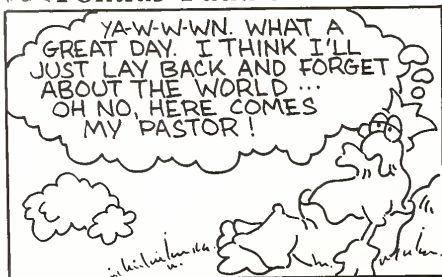 YA-W-W-WN. WHAT A
GREAT DAY. I THINK I'LL
JUST LAY BACK AND FORGET
ABOUT THE WORLD ...
OH NO, HERE COMES
MY PASTOR!